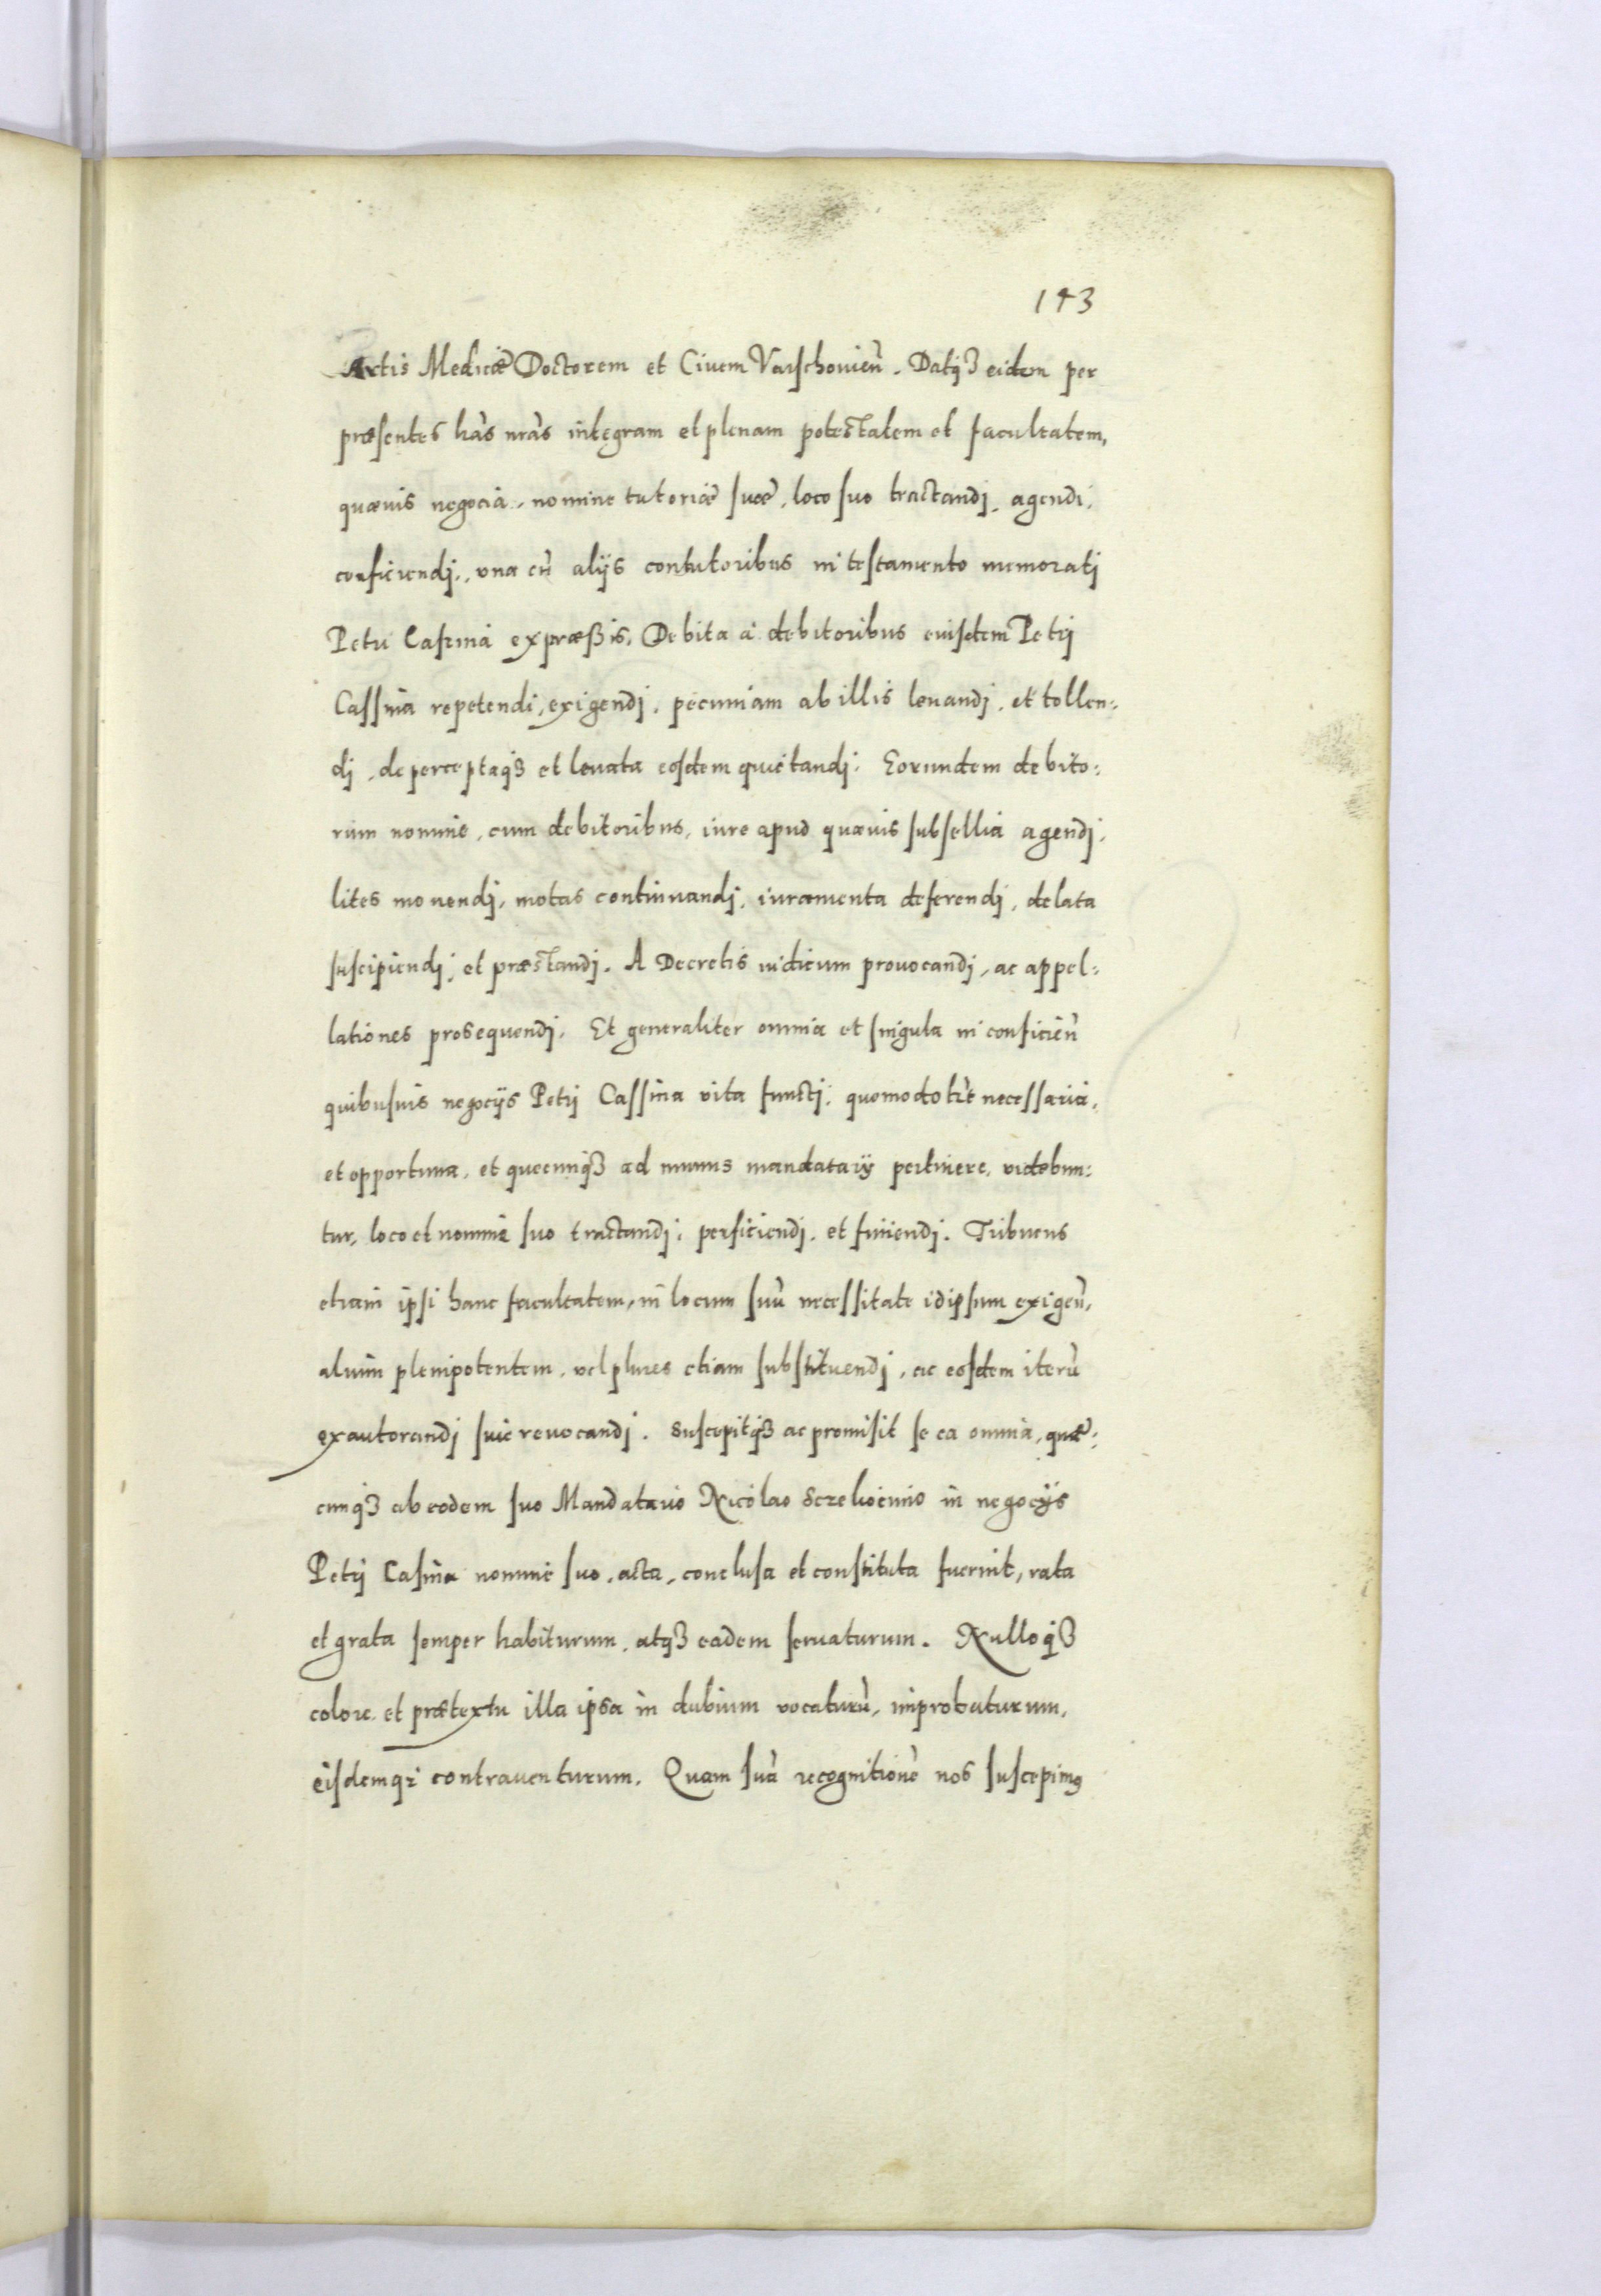 143
Artis Medicæ Doctorem et Civem Varschovien̄. Datq₃ eidem per
præsentes has nras integram et plenam potestatem et facultatem,
quævis negocia, nomine tutoriæ suæ, loco suo tractandj, agendi,
conficiendj, vna cū alijs contutoribus in testamento memorati
Petri Casina expræßis, Debita a debitoribus euisdem Petrj
Cassina repetendi, exigendj, pecuniam ab illis leuandj, et tollen:
dj, de perceptaq₃ et leuata eosdem quietandj. Eorundem debito:
rum nomine, cum debitoribus, iure apud quævis subsellia agendj,
lites mouendj, motas continuandj, iuramenta deferendj, delata
suscipiendj, et præstandj. A Decretis iudicum prouocandj, ac appel:
lationes prosequendj. Et generaliter omnia et singula in conficien̄
quibusuis negocijs Petrj Cassina vita functj, quomodolit̄ necessaria,
et opportuna, et quecunq₃ ad munus mandatarij pertinere, videbun:
tur, loco et nomine suo tractandj, perficiendj, et finiendj. Tribuens
etiam ipsi hanc facultatem, in locum suū necessitate idipsum exigen̄,
alium plenipotentem, vel plures etiam substituendj, ac eosdem iterū
exautorandj siue reuocandj. Suscepitq₃ ac promisit se ea omnia, quæ:
cunq₃ ab eodem suo Mandatario Nicolao in negocijs
Petrj Casina nomine suo, acta, conclusa et constituta fuerint, rata
et grata semper habiturum, atq₃ eadem seruaturum. Nulloq₃
colore et prætextu illa ipsa in dubium vocaturū, improbaturum,
eisdemq₃ contrauenturum. Quam suā recognitionē nos suscepimꝰ